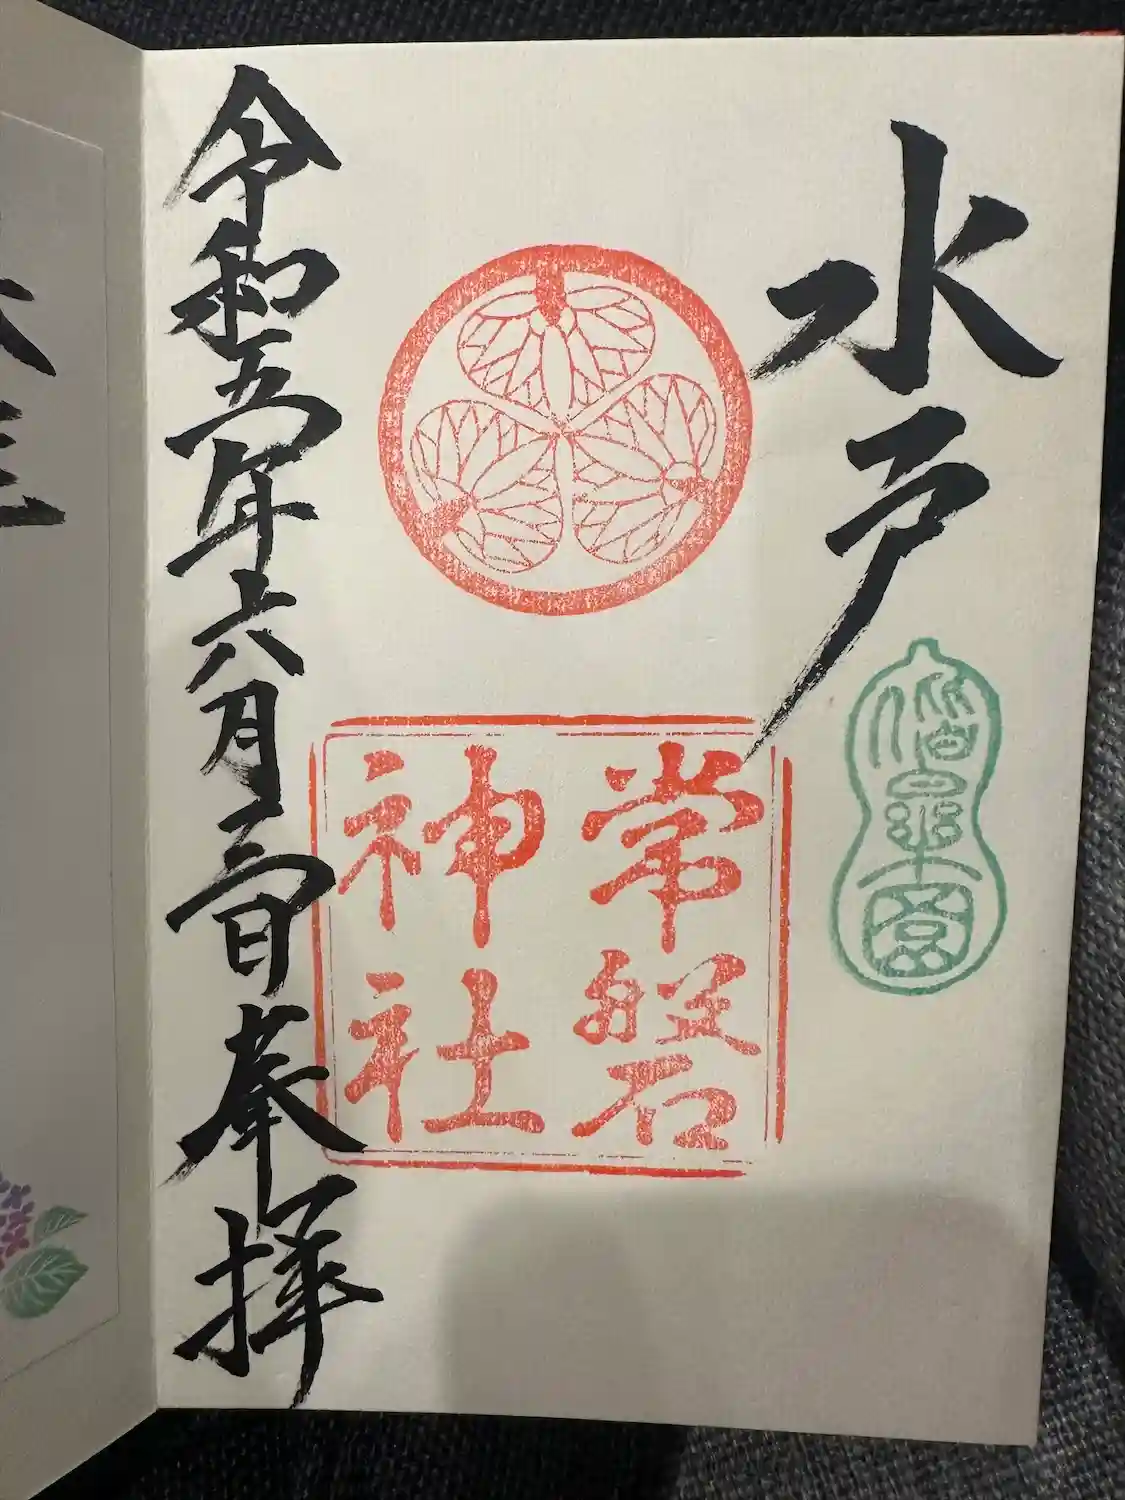 水戸
偕楽園
常磐
神社
令和五年六月三日奉拝